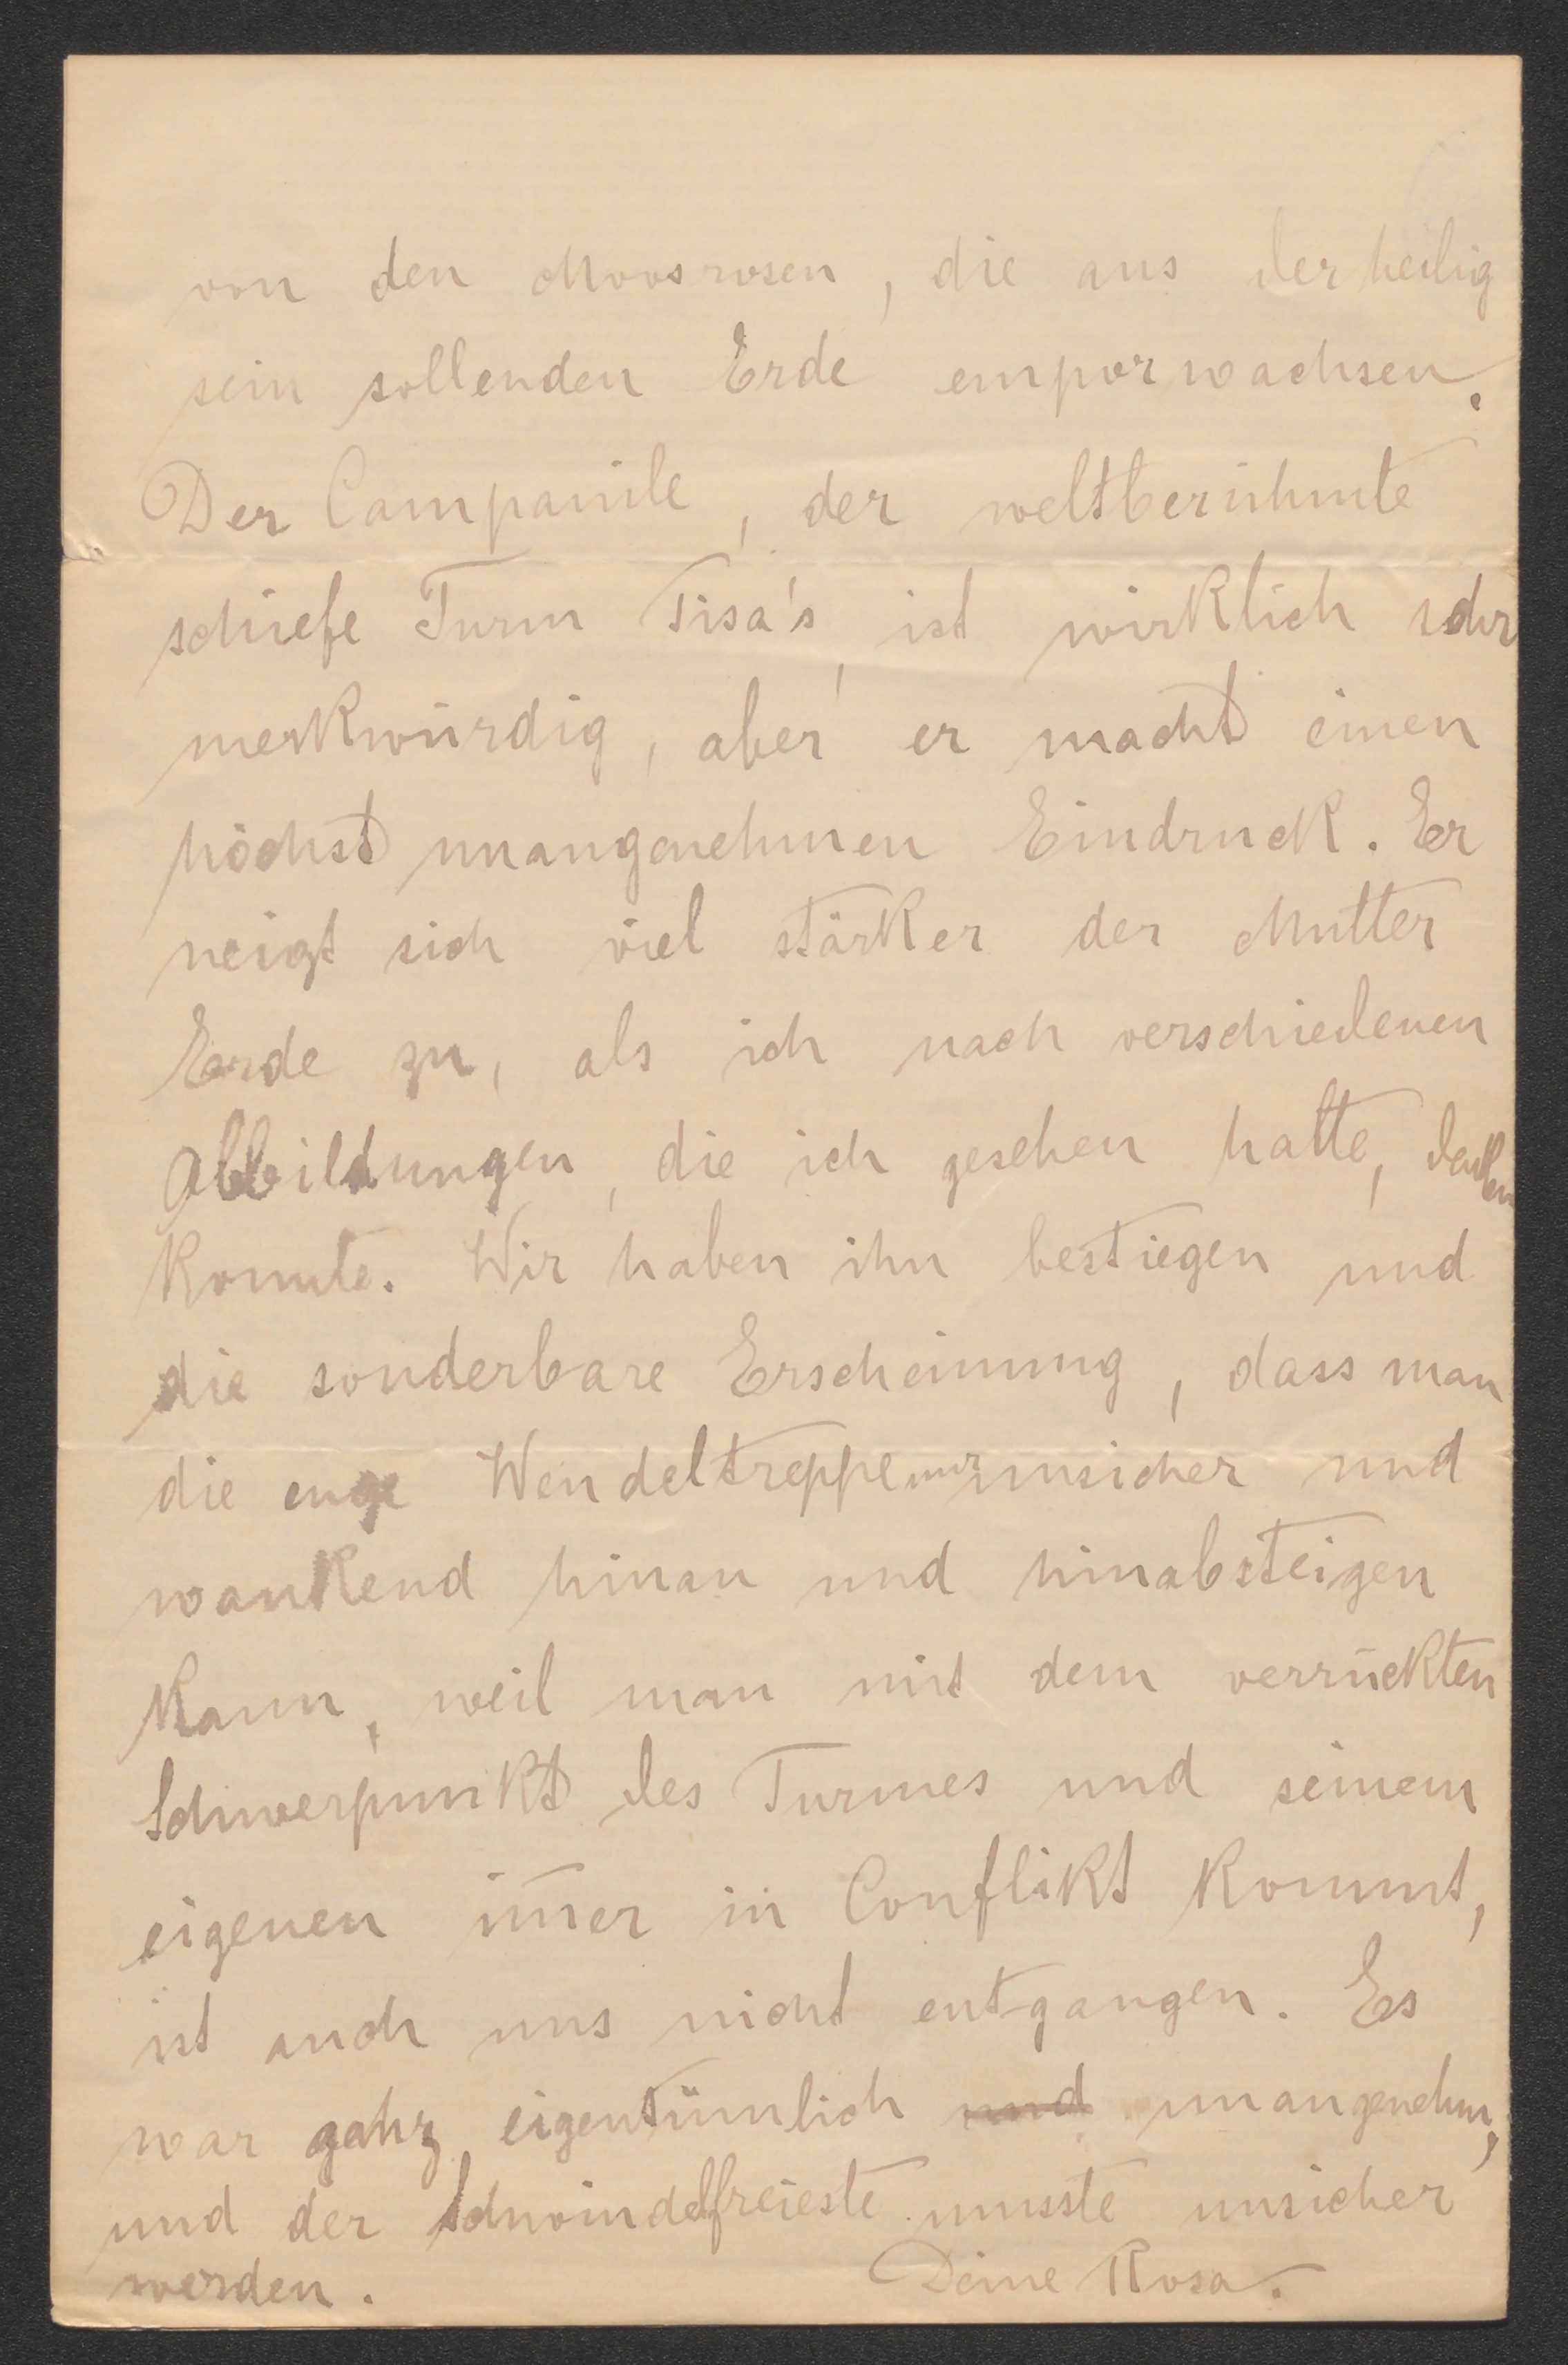 von den Moosrosen, die aus der heilig
sein sollenden Erde emporwachsen.
Der Campanile, der weltberühmte
schiefe Turm Pisa's, ist wirklich sehr
merkwürdig, aber er macht einen
höchst unangenehmen Eindruck. Er
neigt sich viel stärker der Mutter
Erde zu, als ich nach verschiedenen
Abbildungen, die ich gesehen hatte, denken
konnte. Wir haben ihn bestiegen und
die sonderbare Erscheinung, dass man
die enge Wendeltreppe nur unsicher und
wankend hinan und hinabsteigen
kann, weil man mit dem verrückten
Schwerpunkt des Turmes und seinem
eigenen im̅er in Conflikt kommt,
ist auch uns nicht entgangen. Es
war ganz eigentümlich und unangenehm,
und der schwindelfreieste musste unsicher
werden. Deine Rosa.